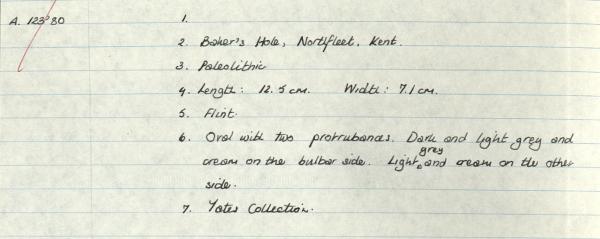 A. 123'80 1.
2. Baker's Hole, Northfleet, Kent.
3. Paleolithic
4. Length: 12.5 cm. Width: 7.1 cm.
5. Flint.
6. Oval with two protrubances. Dark and light grey and
cream on the bulbar side. Light grey and cream on the other
side.
7. Yates Collection.